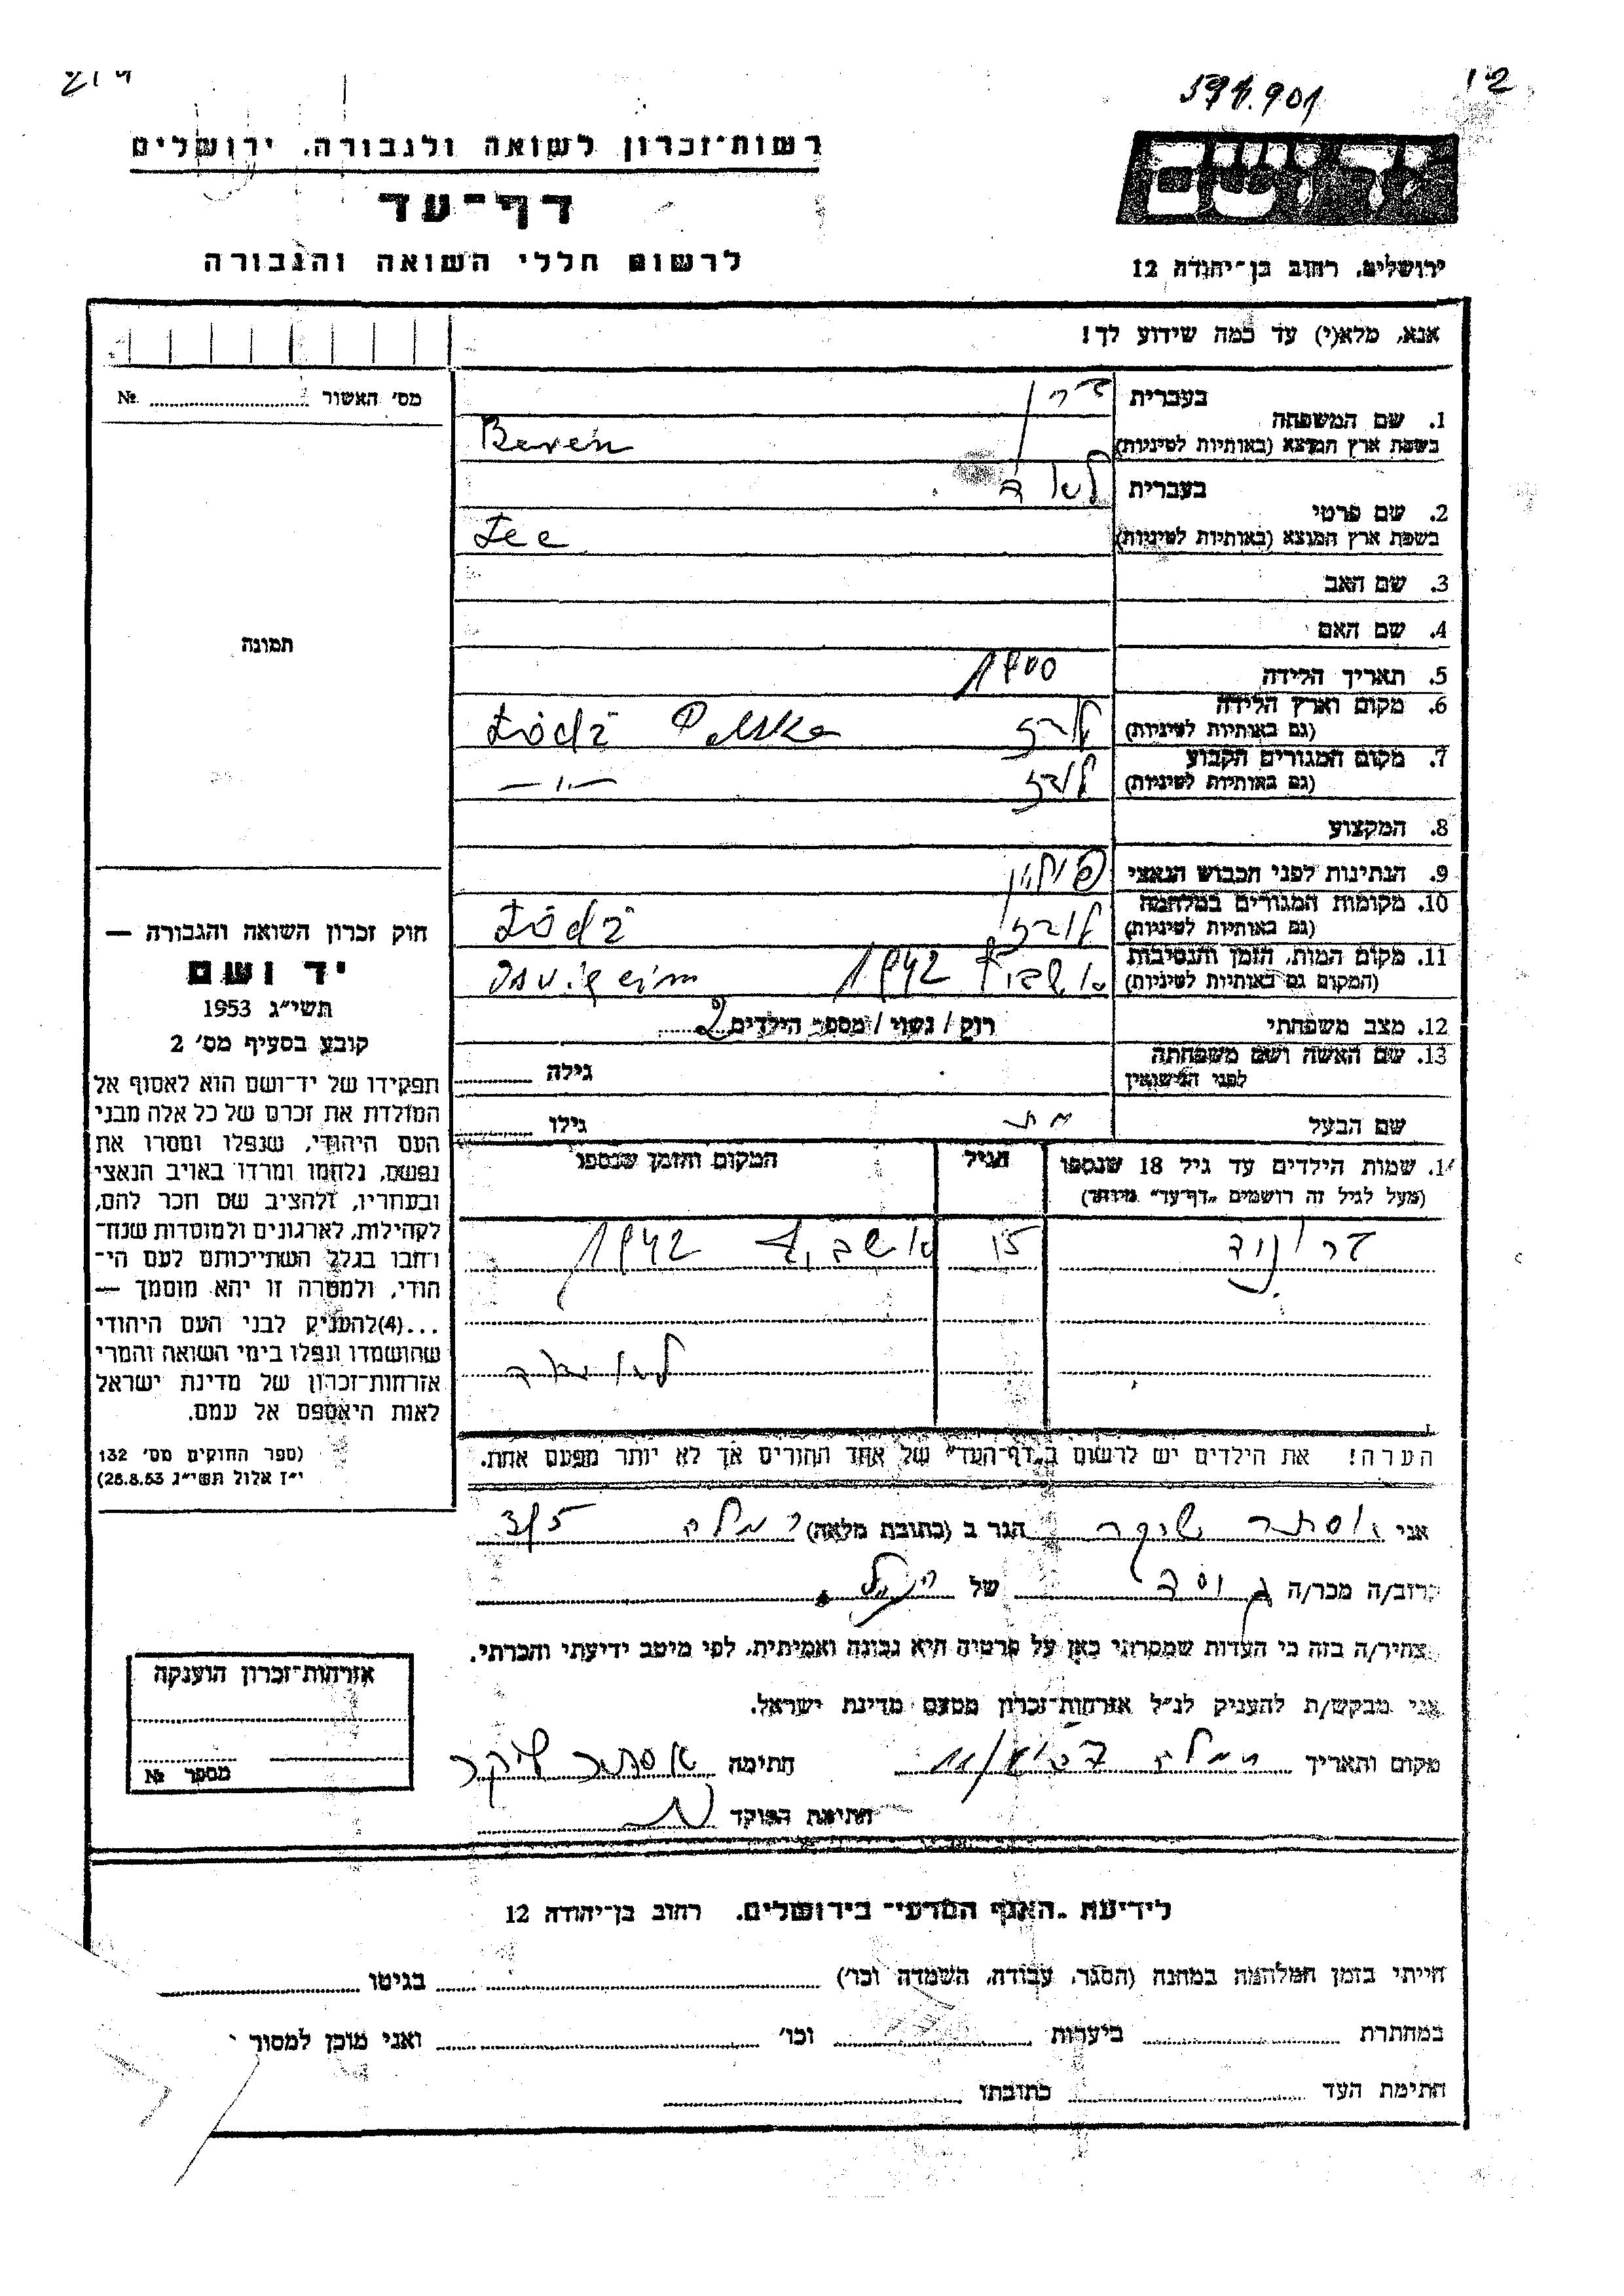 12
591.901
רשות־זכרון לשואה ולגבורה, ירושלים
יד ושם
דף־עד
לרשום חללי השואה והגבורה
ירושלים, רחוב בן־יהודה 12
אנא, מלא(י) עד כמה שידוע לך!
מס' האשור № 
1. שם המשפחה
בעברית
בשפת ארץ המוצא (באותיות לטיניות) Beren
2. שם פרטי
בעברית
בשפת ארץ המוצא (באותיות לטיניות) Lee
3. שם האב
4. שם האם
תמונה
5. תאריך הלידה 1900
6. מקום וארץ הלידה
(גם באותיות לטיניות) לודז Łódź Polska
7. מקום המגורים הקבוע
(גם באותיות לטיניות) לודז — ״ —
8. המקצוע
9. הנתינות לפני הכבוש הנאצי פולין
10. מקומות המגורים במלחמה
(גם באותיות לטיניות) לודז Łódź
11. מקום המות, הזמן והנסיבות
(המקום גם באותיות לטיניות) 1942
12. מצב משפחתי רוק / נשוי / מספר הילדים 2
13. שם האשה ושם משפחתה
לפני הנישואין גילה
שם הבעל גילו
14. שמות הילדים עד גיל 18 שנספו
(מעל לגיל זה רושמים „דף־עד" מיוחד)
הגיל
המקום והזמן שנספו
15 1942
הערה! את הילדים יש לרשום ב„דף־העד" של אחד ההורים אך לא יותר מפעם אחת.
חוק זכרון השואה והגבורה —
יד ושם
תשי״ג 1953
קובע בסעיף מס' 2
תפקידו של יד־ושם הוא לאסוף אל
המולדת את זכרם של כל אלה מבני
העם היהודי, שנפלו ומסרו את
נפשם, נלחמו ומרדו באויב הנאצי
ובעוזריו, ולהציב שם וזכר להם,
לקהילות, לארגונים ולמוסדות שנח־
רבו בגלל השתייכותם לעם הי־
הודי, ולמטרה זו יהא מוסמך —
...(4)להעניק לבני העם היהודי
שהושמדו ונפלו בימי השואה והמרי
אזרחות־זכרון של מדינת ישראל
לאות היאספם אל עמם.
(ספר החוקים מס' 132
י״ז אלול תשי״ג 28.8.53)
אני אסתר שיקר הגר ב (כתובת מלאה) רמלה
קרוב/ה מכר/ה גיסה של
מצהיר/ה בזה כי העדות שמסרתי כאן על פרטיה היא נכונה ואמיתית, לפי מיטב ידיעתי והכרתי.
אני מבקש/ת להעניק לנ״ל אזרחות־זכרון מטעם מדינת ישראל.
מקום ותאריך רמלה חתימה אסתר שיקר
חתימת הפוקד
אזרחות־זכרון הוענקה
מספר №
לידיעת „האגף המדעי" בירושלים, רחוב בן־יהודה 12
הייתי בזמן המלחמה במחנה (הסגר, עבודה, השמדה וכו') בגיטו
במחתרת ביערות וכו' ואני מוכן למסור
חתימת העד כתובתו